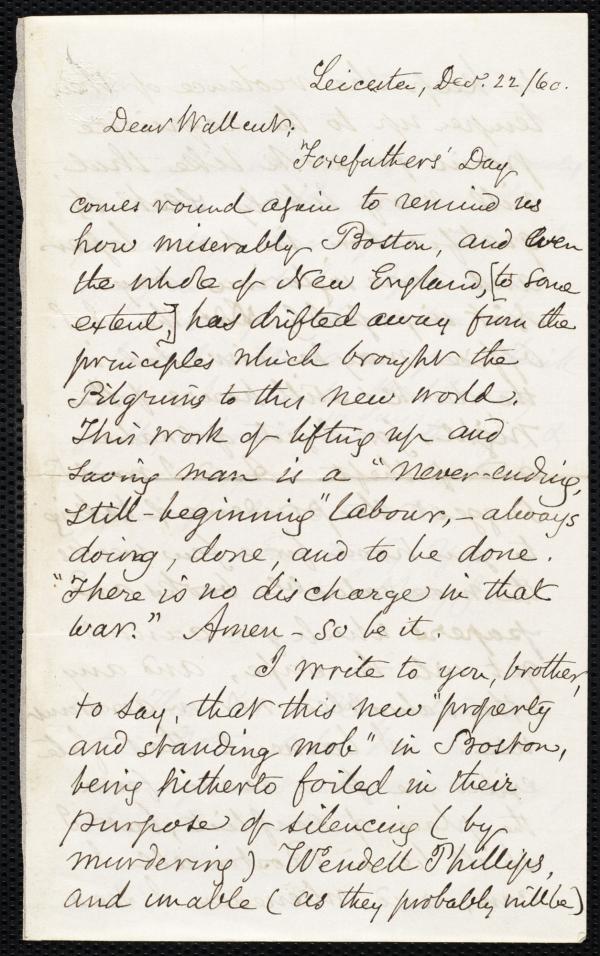 Leicester, Dec. 22/60.
Dear Wallcut;
"Forefathers' Day
comes round again to remind us
how miserably Boston, and even
the whole of New England, [to some
extent,] has drifted away from the
principles which brought the
Pilgrims to this new world.
This work of lifting up and
saving man is a "never-ending,
still-beginning" labour, - always
doing, done, and to be done.
"There is no discharge in that
war." Amen - so be it.
I write to you, brother,
to say, that this new "property
and standing mob" in Boston,
being hitherto foiled in their
purpose of silencing (by
murdering) Wendell Phillips,
and unable (as they probably will be)